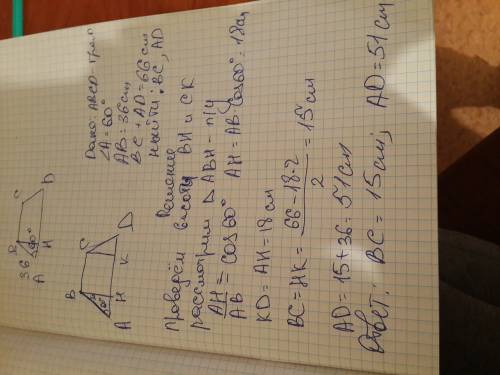 B C
36 60°
A H D
Дано: ABCD трап
∠A = 60°
AB = 36 см
BC + AD = 66 см
найти: BC, AD
B C
60°
A H K D
Решение
Проведём высоты BH и CK
рассмотрим △ ABH - п/у
AH/AB = cos 60° AH = AB · cos 60° = 18 см
KD = AH = 18 см
BC = HK = (66 - 18·2)/2 = 15 см
AD = 15 + 36 = 51 см
Ответ: BC = 15 см; AD = 51 см